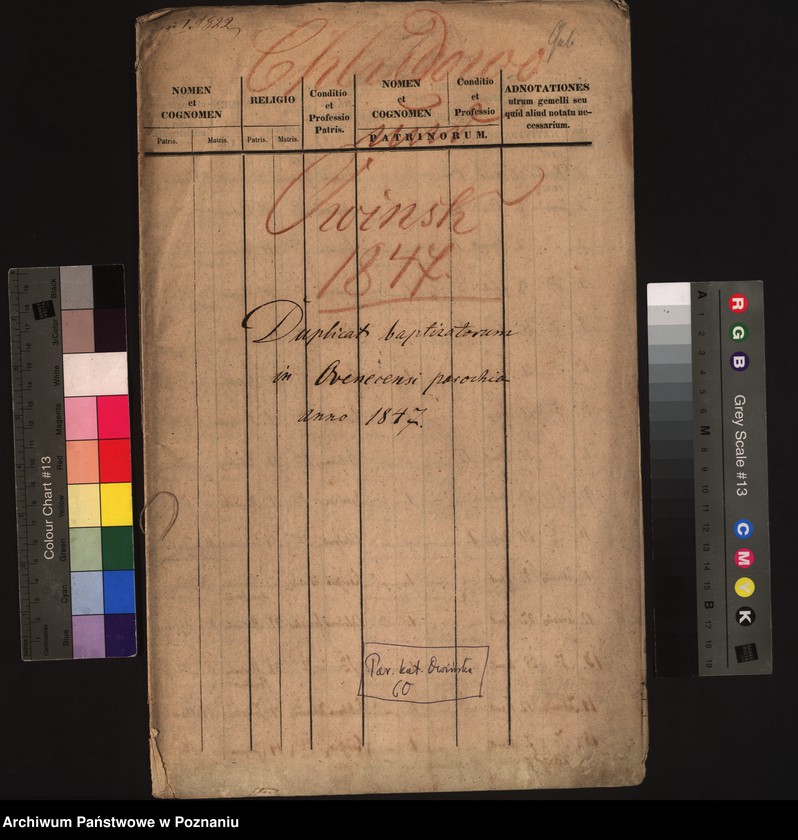 1922
Chludowo
NOMEN
et
COGNOMEN
RELIGIO
Conditio
et
Professio
Patris.
NOMEN
et
COGNOMEN
Conditio
et
Professio
PATRINORUM.
ADNOTATIONES
utrum gemelli seu
quid aliud notatu ne-
cessarium.
Patris.
Matris.
Patris.
Matris.
Owinsk
1847.
Duplicat baptizatorum
in Ovenecensi parochia
anno 1847.
Par. kat. Owińska
60
Colour Chart #13
Black
3/Color
White
Magenta
Red
Yellow
Green
Cyan
Blue
Centimetres
Grey Scale #13
R
G
B
C
M
Y
K
A
1
2
3
4
5
6
M
8
9
10
11
12
13
14
15
B
17
18
19
Archiwum Państwowe w Poznaniu